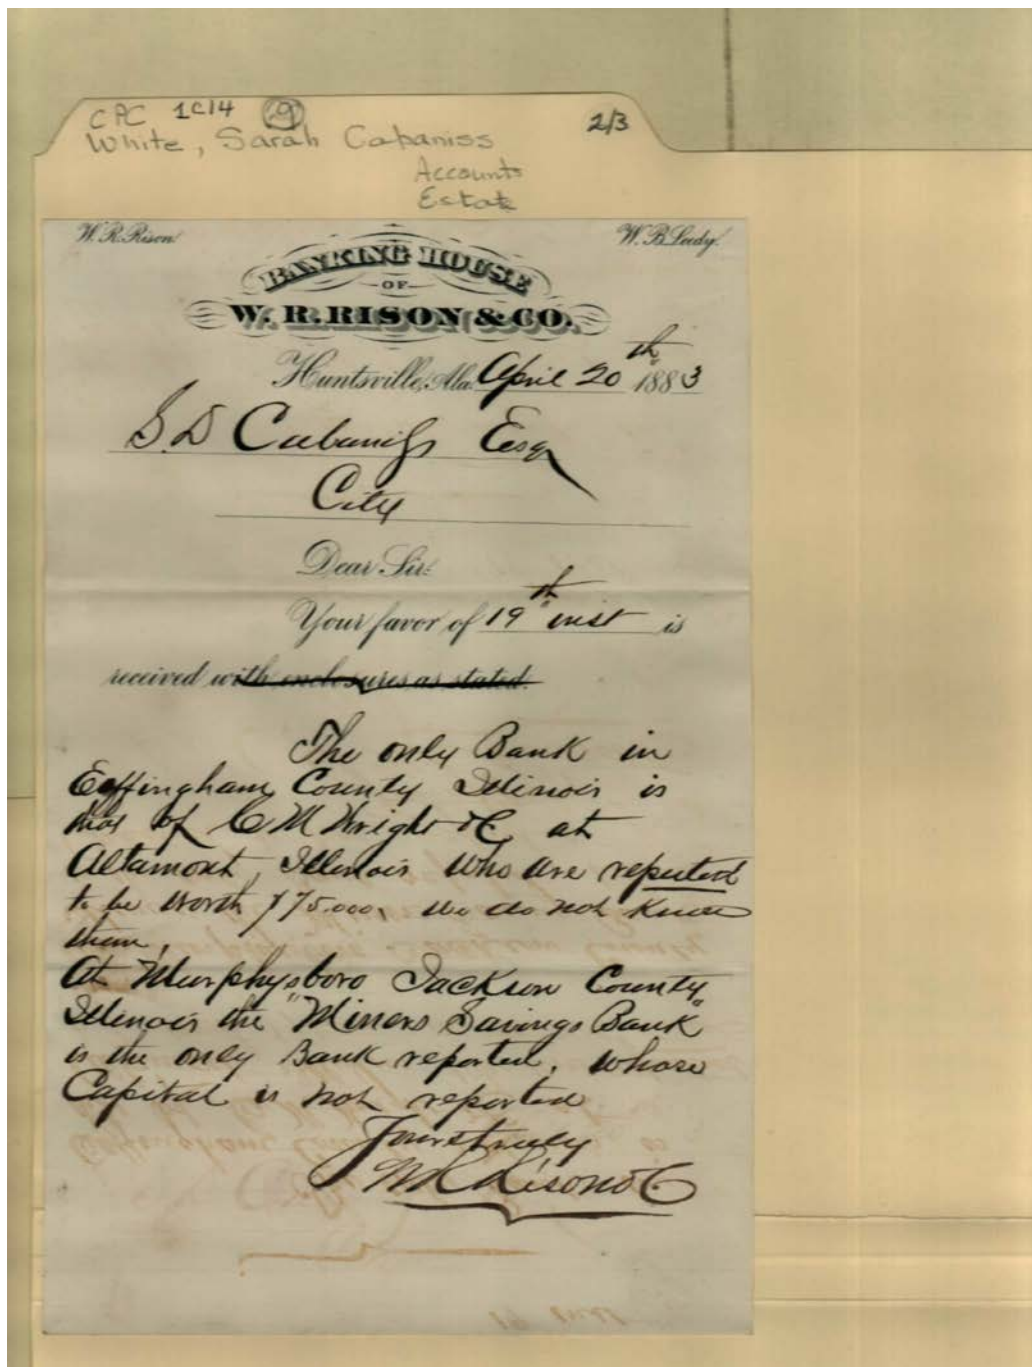 CPC 1C14 (29) 2/3
White, Sarah Cabaniss
Accounts
Estate
W. R. Rison. W. B. Leedy.
BANKING HOUSE
OF
W. R. RISON & CO.
Huntsville, Ala. April 20th 1883
S. D Cabaniss Esq
City
Dear Sir:
Your favor of 19th inst is
received with enclosures as stated.
The only Bank in
Effingham County Illinois is
that of C M Wright & C at
Altamont, Illinois who are reputed
to be worth $75.000, We do not Know
them.
At Murphysboro Jackson County
Illinois the "Miners Savings Bank"
is the only Bank reported, whose
Capital is not reported
Yours truly
W R Rison & C